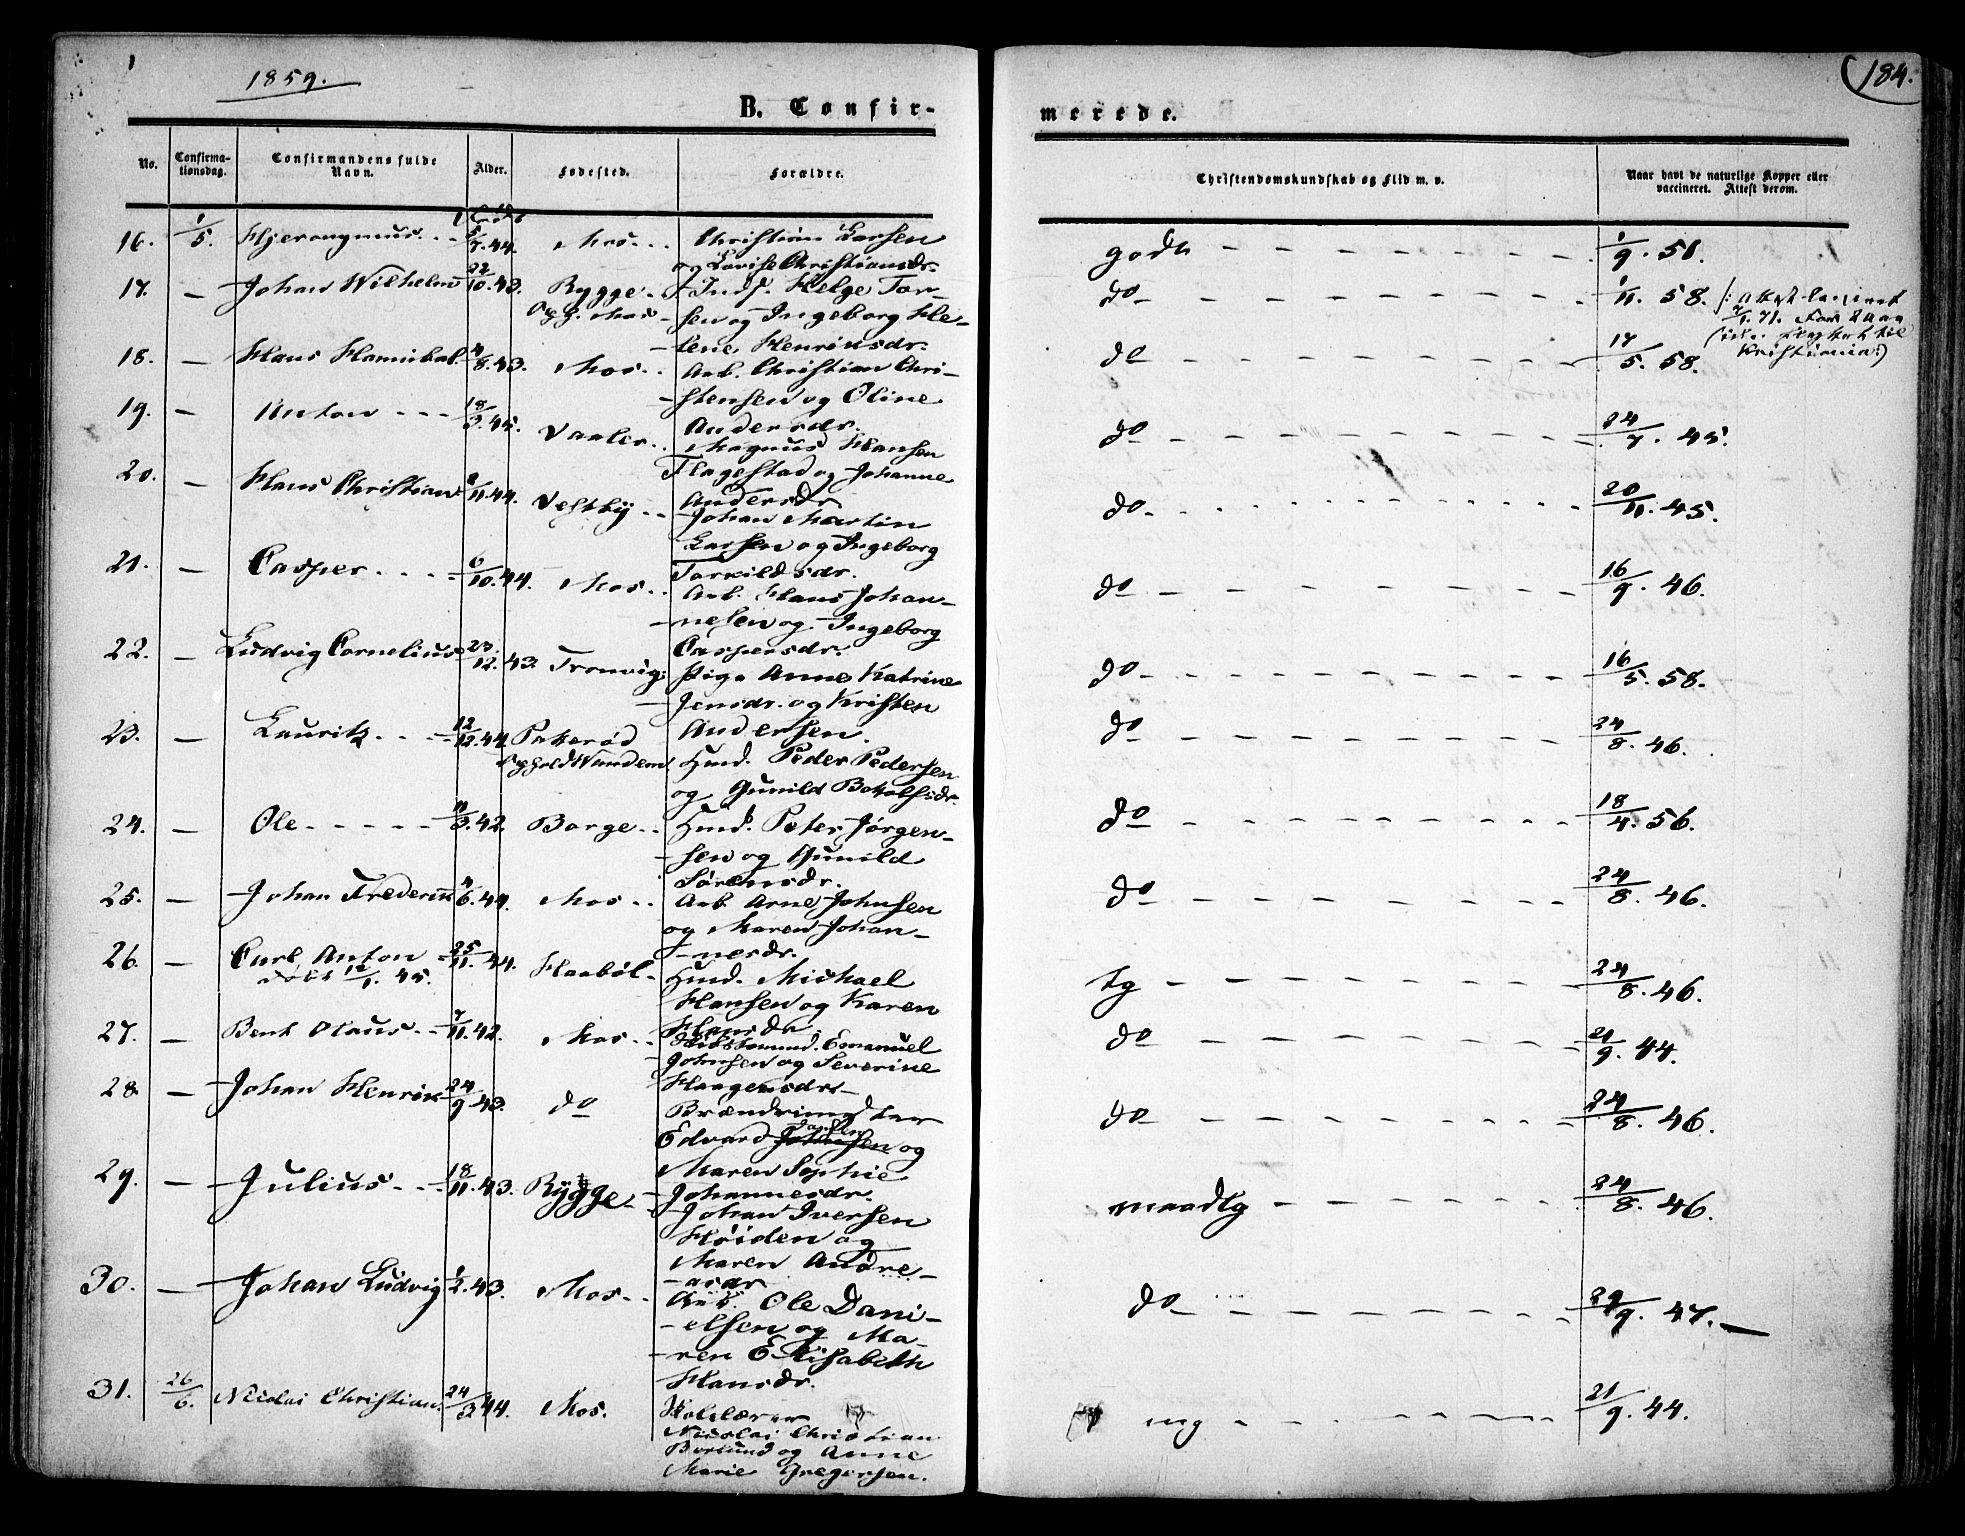 1859.
184.
B. Confir-
merede.
No.
Confirma-
tionsdag.
Confirmandens fulde
Navn.
Alder.
Fødested.
Forældre.
Christendomskundskab og Flid m. v.
Naar havt de naturlige Kopper eller
vaccineret. Attest derom.
16. 1/5. Hjeronymus 5/7.44. Mos Christian Larsen
og Lovise Christiansdr. godt 1/9. 51.
17. — Johan Wilhelm 22/10.43. Rygge Inds. Helge Tor-
Oph. Mos sen og Ingeborg He-
lene Henriksdr. do 1/11. 58.
Kristiania:)
18. — Hans Hannibal 4/8.43. Mos Arb. Christian Chri-
stensen og Oline
Andersdr. do 17/5. 58.
19. — Anton 18/3.45. Vaaler Magnus Hansen
Flagestad og Johanne
Andersdr do 24/7. 45.
20. — Hans Christian 2/11.44. Vestby Johan Martin
Larsen og Ingeborg
Torkildsdr. do 20/11. 45.
21. — Casper 6/10.44. Mos Arb. Hans Johan-
nesen og Ingeborg
Caspersdr. do 16/9. 46.
22. — Ludvig Cornelius 23/12.43. Tronvig Pige Anne Katrine
Jensdr. og Kristen
Andersen. do 16/5. 58.
23. — Lauritz 12/12.44. Pakerød
Huusm. Peder Pedersen
og Gunild do 24/8. 46.
24. — Ole 11/3.42. Borge Huusm. Peter Jørgen-
sen og Gunild
Sørensdr. do 18/4. 56.
25. — Johan Frederik 4/6.44. Mos Arb. Arne Johnsen
og Maren Johan-
nesdr. do 24/8. 46.
26. — Carl Anton 25/11.44. Haabøl
døbt 12/1. 45. Michael
Hansen og Karen
Hansdr. tg 24/8. 46.
27. — Bent Olaus 7/11.42. Mos Emanuel
Johnsen og Severine
Haagensdr do 21/9. 44.
28. — Johan Henrik 24/9.43. do
Edvard Johnsen og
Maren Sophie
Johannesdr. do 24/8. 46.
29. — Julius 18/11.43. Rygge Johan Iversen
Høiden og
Maren Andre-
asdr maadlg 24/8. 46.
30. — Johan Ludvig 1/2.43. Mos Arb. Ole Dani-
elsen og Ma-
ren Elisabeth
Hansdr. do 29/9. 47.
31. 26/6. Nicolai Christian 24/3.44. Mos.
Nicolai Christian
Borlund og Anne
Marie Gregersen. mg 21/9. 44.